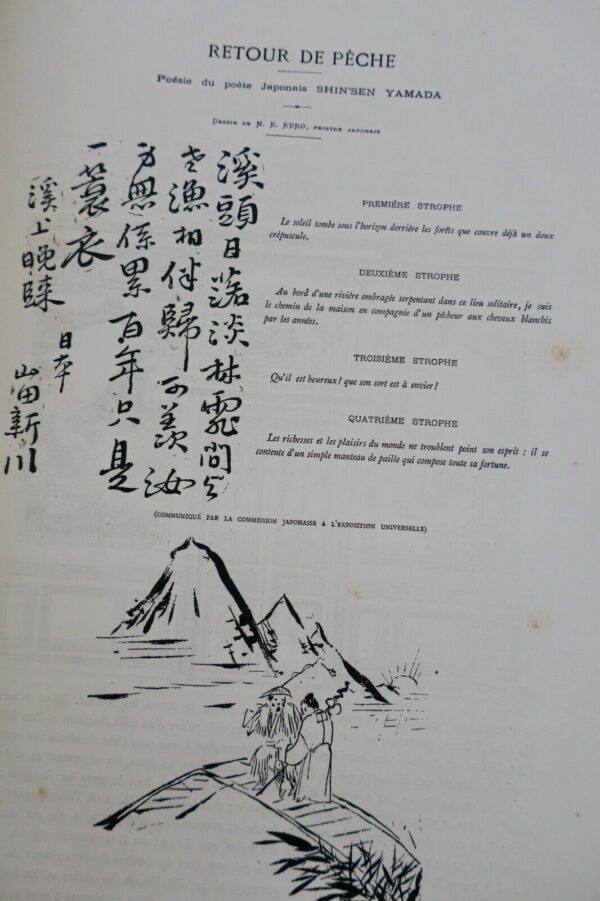 RETOUR DE PÊCHE
Poésie du poète Japonais SHIN'SEN YAMADA
DESSIN DE M. K. KUBO, PEINTRE JAPONAIS
溪頭日落淡林霏間与
老漁相伴歸可羨汝
身無係累百年只是
一蓑衣
溪上晩歸
日本
山田新川
PREMIÈRE STROPHE
Le soleil tombe sous l'horizon derrière les forêts que couvre déjà un doux
crépuscule.
DEUXIÈME STROPHE
Au bord d'une rivière ombragée serpentant dans ce lieu solitaire, je suis
le chemin de la maison en compagnie d'un pêcheur aux cheveux blanchis
par les années.
TROISIÈME STROPHE
Qu'il est heureux! que son sort est à envier!
QUATRIÈME STROPHE
Les richesses et les plaisirs du monde ne troublent point son esprit : il se
contente d'un simple manteau de paille qui compose toute sa fortune.
(COMMUNIQUÉ PAR LA COMMISSION JAPONAISE A L'EXPOSITION UNIVERSELLE)